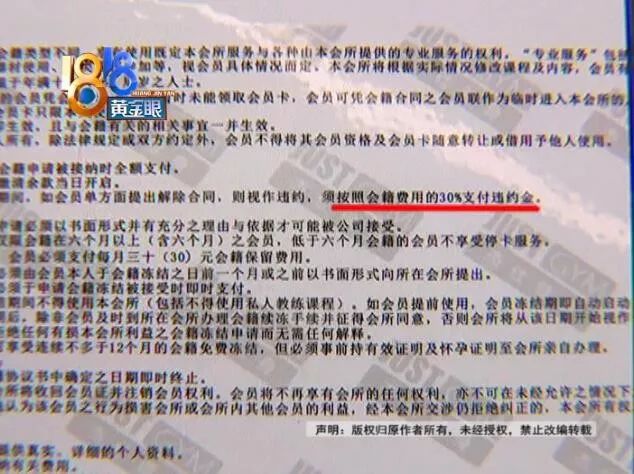 会籍类型不同，享有使用既定本会所服务与各种由本会所提供的专业服务的权利，“专业服务”包
时使用、 加等，视会员具体情况而定、本会所将根据实际情况修改课程及内容，会员有
于年满十 岁之人士。
1818
HUANG JIN YAN
黄金眼
的会员凭会 时未能领取会员卡，会员可凭会籍合同之会员联作为临时进入本会所的
员卡只限本
生效，且与会籍有关的相关事宜一并生效。
人所有，除法律规定或双方约定外，会员不得将其会员资格及会员卡随意转让或借用予他人使用。
会籍申请被接纳时全额支付。
缴清余款当日开启。
期间，如会员单方面提出解除合同，则视作违约，须按照会籍费用的30%支付违约金。
申请必须以书面形式并有充分之理由与依据才可能被公司接受。
仅限会籍在六个月以上（含六个月）之会员，低于六个月会籍的会员不享受停卡服务。
会员必须支付每月三十（30）元会籍保留费用。
必须由会员本人于会籍冻结之日前一个月或之前以书面形式向所在会所提出。
必须于申请会籍冻结被接受时即时支付。
期间不得使用本会所（包括不得使用私人教练课程）。如会员提前使用，会员冻结期即自动启动
期后，除非会员及时到所在会所办理会籍续冻手续并征得会所同意，否则会所将从该日期开始视作
受任何有损本会所利益之会籍冻结申请而无需任何解释。
享受连续不多于12个月的会籍免费冻结，但必须事前持有效证明及怀孕证明至会所亲自办理。
协议书中确定之日期即时终止。
所将收回会员证并注销会员权利。会员将不再享有会所的任何权利，亦不可在未经允许之情况下
认为该会员之行为损害会所或会所内其他会员的利益，经本会所交涉仍拒绝纠正的，本会所有权
提供真实、详细的个人资料。
纳有关费用。
JUST GYM
声明：版权归原作者所有，未经授权，禁止改编转载